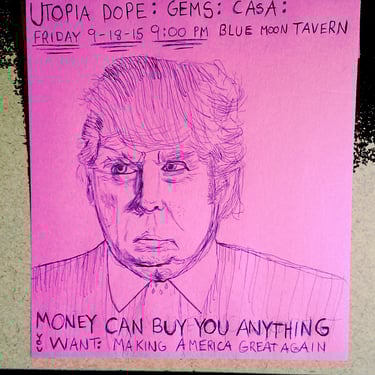 UTOPIA DOPE: GEMS: CASA:
FRIDAY 9-18-15 9:00 PM BLUE MOON TAVERN
MONEY CAN BUY YOU ANYTHING
& WANT: MAKING AMERICA GREAT AGAIN